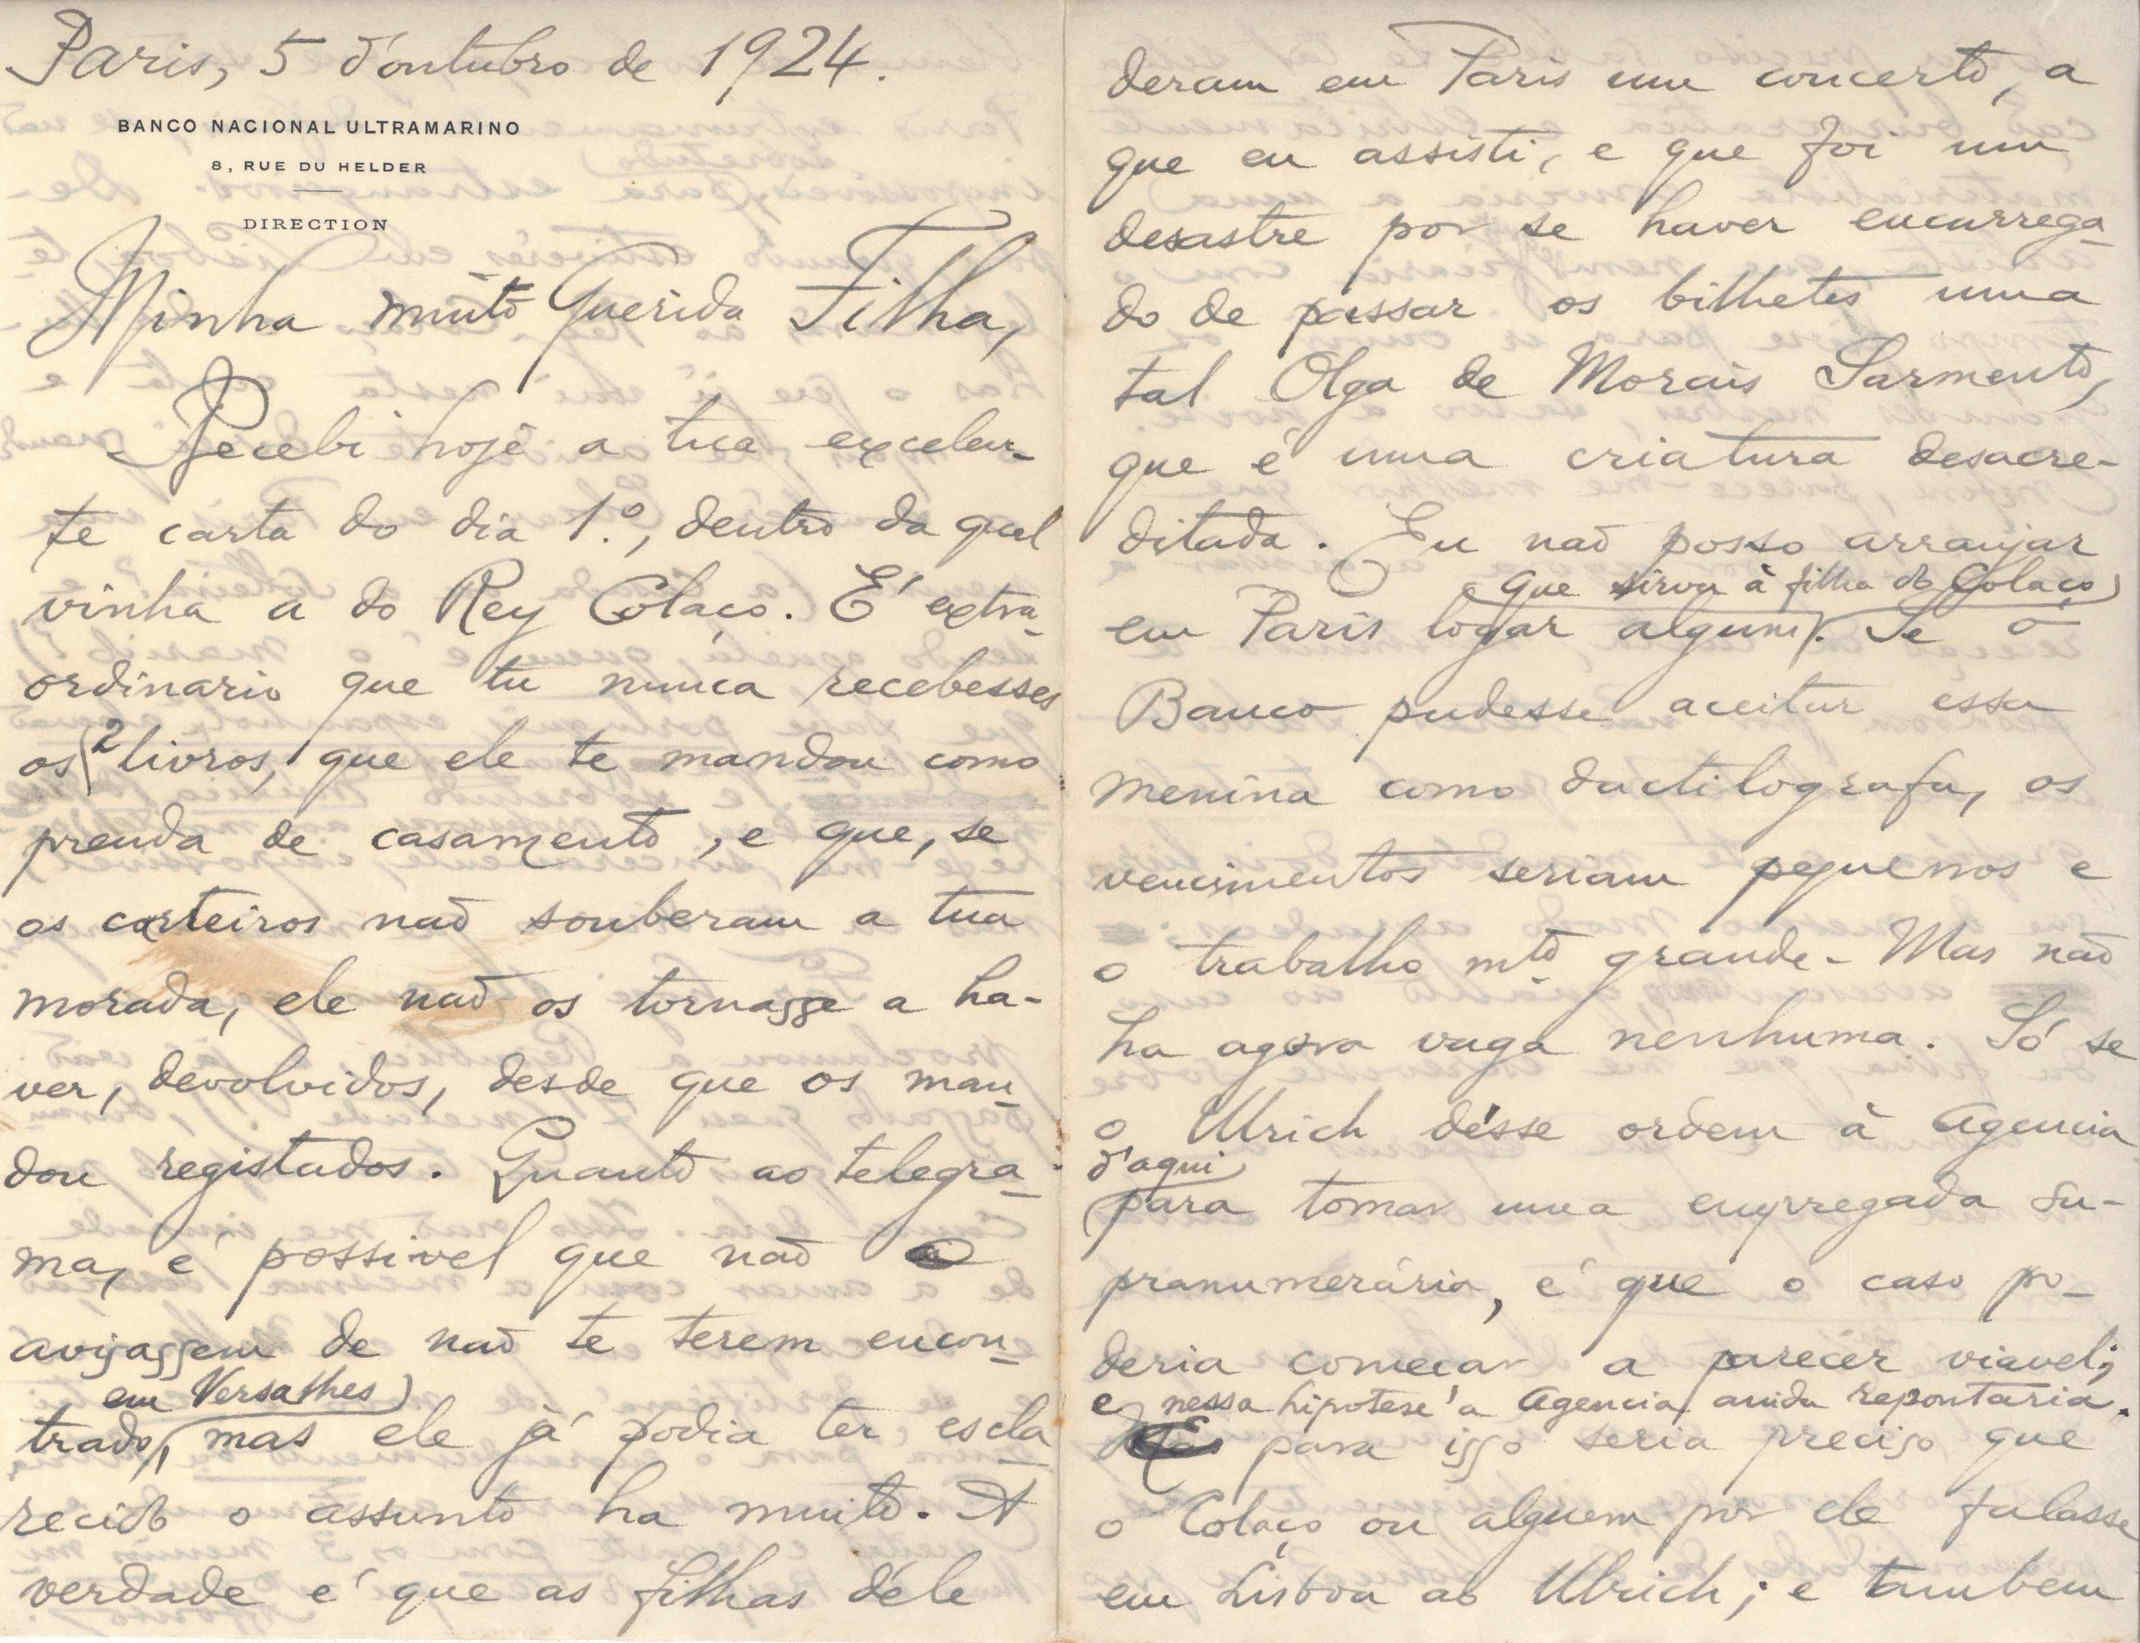 Paris, 5 d'outubro de 1924.
BANCO NACIONAL ULTRAMARINO
8, RUE DU HELDER
DIRECTION
Minha muito Querida Filha,
Recebi hoje a tua excelen-
te carta do dia 1.º, dentro da qual
vinha a do Rey Colaço. É extra-
ordinario que tu nunca recebesses
os 2 livros, que ele te mandou como
prenda de casamento, e que, se
os carteiros não souberam a tua
morada, ele não os tornasse a ha-
ver, devolvidos, desde que os man-
dou registados. Quanto ao telegra-
ma, é possivel que não
avisassem de não te terem encon-
em Versalhes
trado, mas ele já podia ter escla-
recido o assunto ha muito. A
verdade é que as filhas déle
deram em Paris um concerto, a
que eu assisti, e que foi um
desastre por se haver encarrega-
do de passar os bilhetes uma
tal Olga de Morais Sarmento,
que é uma criatura desacre-
ditada. Eu não posso arranjar
que sirva à filha do Colaço
em Paris logar algum. Se o
Banco pudesse aceitar essa
menina como dactilografa, os
vencimentos seriam pequenos e
o trabalho mto grande - Mas não
ha agora vaga nenhuma. Só se
o Ulrich désse ordem à Agencia
d'aqui
para tomar uma empregada su-
pranumerária, é que o caso po-
deria começar a parecer viavel;
e nessa hipotese a Agencia ainda repontaria.
E para isso seria preciso que
o Colaço ou alguem por ele falasse
em Lisboa ao Ulrich; e tambem